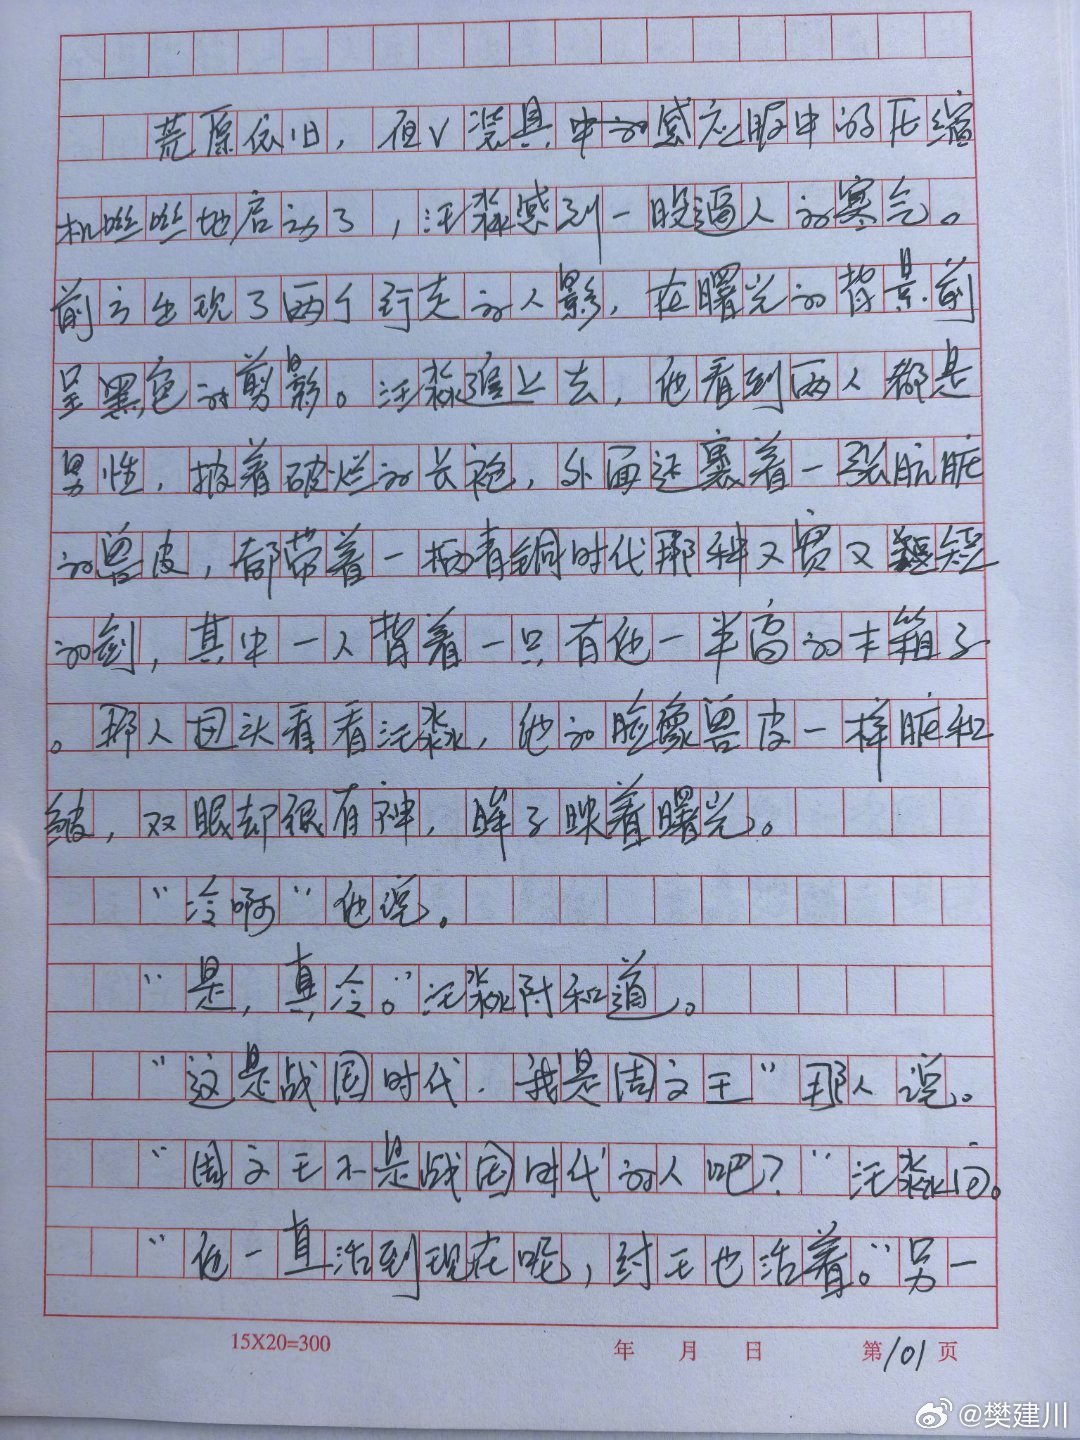 荒原依旧，但V装具中的感应服中的压缩
机咝咝地启动了，汪淼感到一股逼人的寒气。
前方出现了两个行走的人影，在曙光的背景前
呈黑色的剪影。汪淼追上去，他看到两人都是
男性，披着破烂的长袍，外面还裹着一张肮脏
的兽皮，都带着一把青铜时代那种又宽又短
的剑，其中一人背着一只有他一半高的木箱子
。那人回头看看汪淼，他的脸像兽皮一样脏和
皱，双眼却很有神，眸子映着曙光。
“冷啊”他说。
“是，真冷。”汪淼附和道。
“这是战国时代．我是周文王”那人说。
“周文王不是战国时代的人吧？”汪淼问。
“他一直活到现在呢，纣王也活着。”另一
15X20=300 年 月 日 第101页
@樊建川